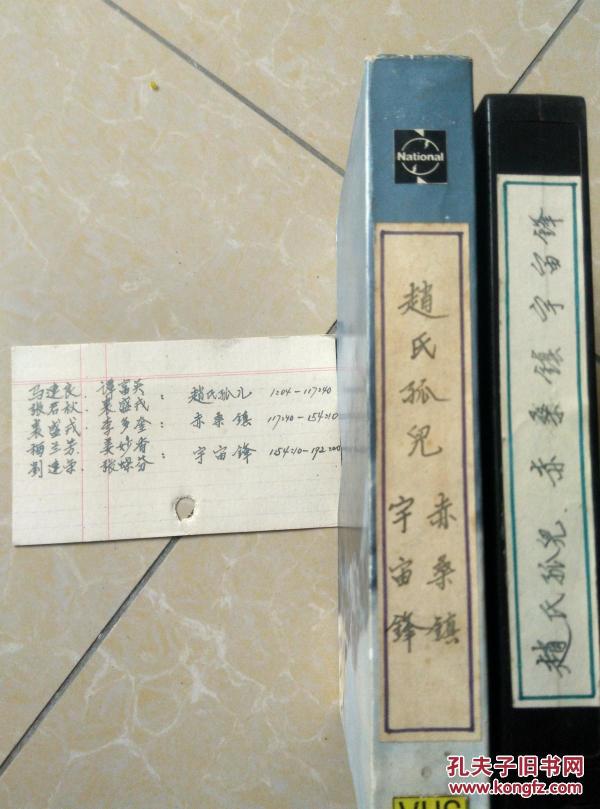 马连良、谭富英
张君秋、裘盛戎：赵氏孤儿 1204-117240
裘盛戎、李多奎：赤桑镇 117240-154210
梅兰芳、姜妙香
刘连荣、张蝶芬：宇宙锋 154210-192200
National
趙氏孤兒
赤桑鎮
宇宙鋒
VHS
趙氏孤兒、赤桑镇宇宙鋒
孔夫子旧书网
www.kongfz.com